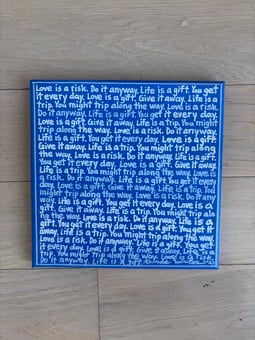 Love is a risk. Do it anyway. Life is a gift. You get
it every day. Love is a gift. Give it away. Life is a
trip. You might trip along the way. Love is a risk.
Do it anyway. Life is a gift. You get it every day.
Love is a gift. Give it away. Life is a trip. You might
trip along the way. Love is a risk. Do it anyway.
Life is a gift. You get it every day. Love is a gift.
Give it away. Life is a trip. You might trip along
the way. Love is a risk. Do it anyway. Life is a gift.
You get it every day. Love is a gift. Give it away.
Life is a trip. You might trip along the way. Love is
a risk. Do it anyway. Life is a gift. You get it every
day. Love is a gift. Give it away. Life is a trip. You
might trip along the way. Love is a risk. Do it anyway.
Life is a gift. You get it every day. Love is a
gift. Give it away. Life is a trip. You might trip alo
ng the way. Love is a risk. Do it anyway. Life is a
gift. You get it every day. Love is a gift. Give it
away. Life is a trip. You might trip along the way.
Love is a risk. Do it anyway. Life is a gift. You get
it every day. Love is a gift. Give it away. Life is a
trip. You might trip along the way. Love is a risk.
Do it anyway. Life is a gift.